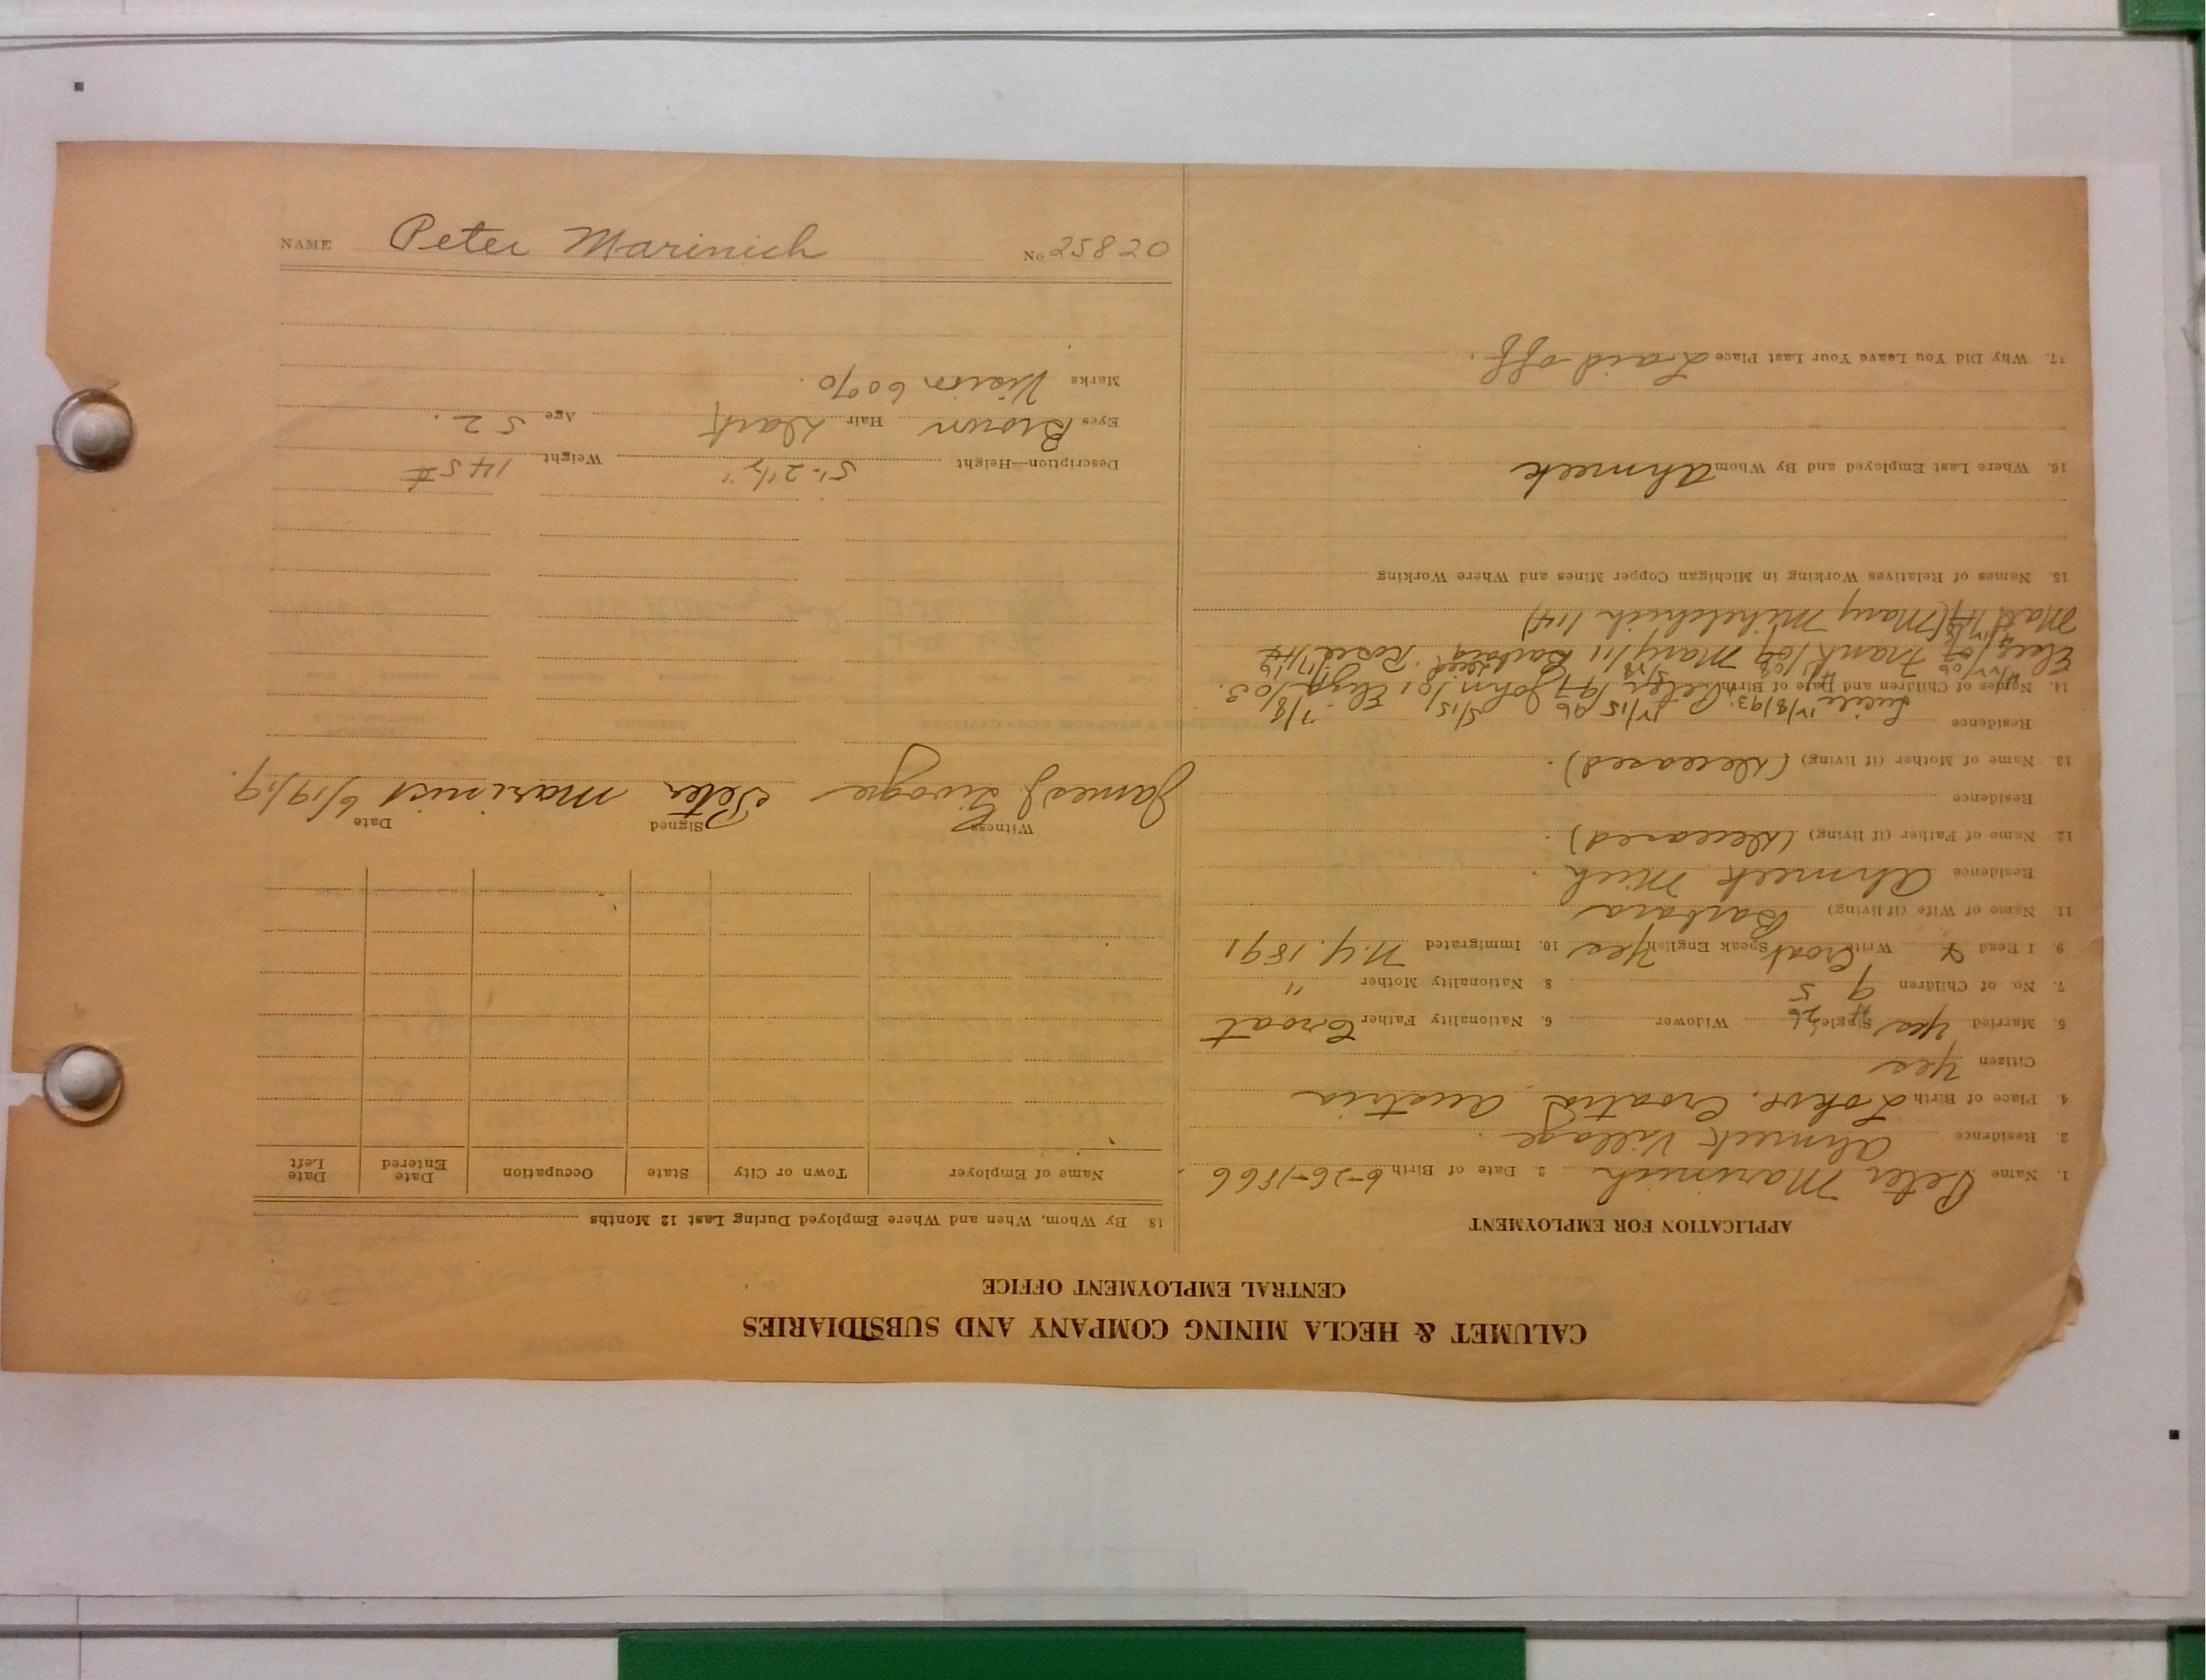 CALUMET & HECLA MINING COMPANY AND SUBSIDIARIES
CENTRAL EMPLOYMENT OFFICE
APPLICATION FOR EMPLOYMENT
1. Name Peter Marinich 2. Date of Birth 6-26-1866
3. Residence Ahmeek Village
4. Place of Birth Lokve, Croatia, Austria
Citizen Yes
5. Married Yes Single Widower 6. Nationality Father Croat
7. No. of Children 9 8. Nationality Mother "
9. I Read & Write Croat Speak English Yes 10. Immigrated N.Y. 1891
11. Name of Wife (if living) Barbara
Residence Ahmeek Mich.
12. Name of Father (if living) (Deceased).
Residence
13. Name of Mother (if living) (Deceased).
Residence
14. Names of Children and Date of Birth Lucile 12/8/93. Peter 12/15 John 5/15 /01 Eliz 7/8/03.
Frank /09 Mary /11 Barbara Rose
Matt (Mary Mihelchich 114)
15. Names of Relatives Working in Michigan Copper Mines and Where Working
16. Where Last Employed and By Whom Ahmeek
17. Why Did You Leave Your Last Place Laid off.
18 By Whom, When and Where Employed During Last 12 Months
Name of Employer Town or City State Occupation Date Entered Date Left
Witness Signed Date
James J. Peter Marinich 6/19/19.
Description—Height 5'-2 1/2" Weight 145 #
Eyes Brown Hair Dark Age 52.
Marks Vision 60%.
NAME Peter Marinich No 25820